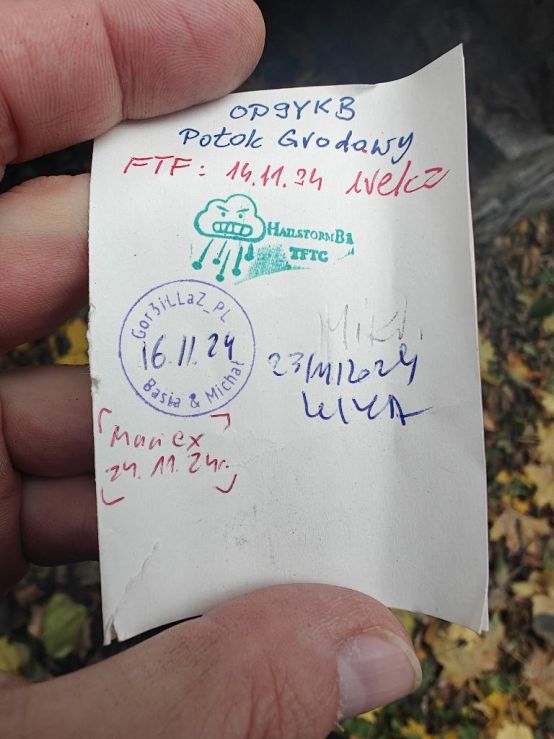 OP9YKB
Potok Grodawy
FTF: 14.11.24 wekz
HAILSTORMB1
TFTC
Gor3iLLaZ_PL
16.11.24
Basia & Michał
23/11/2024
Maniex
24.11.24r.